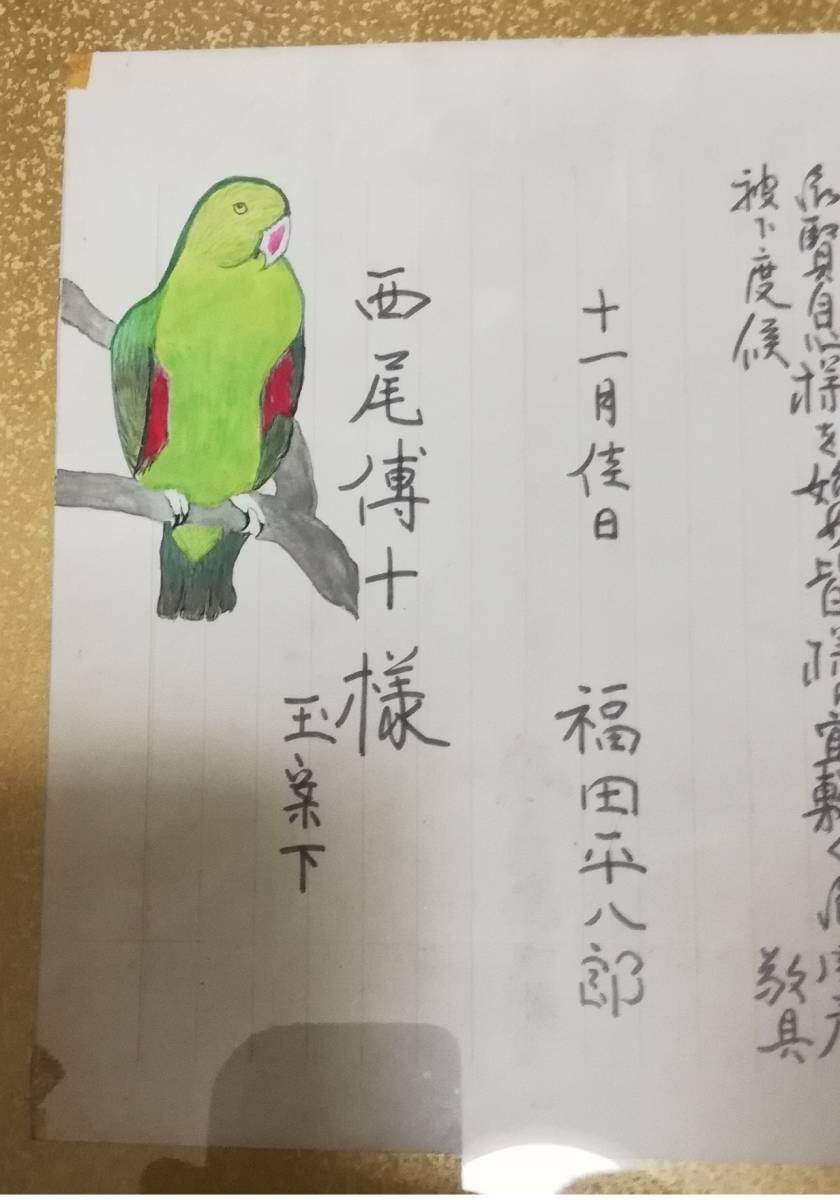 賢息様を始め皆様に宜敷く
被下度候 敬具
十一月佳日 福田平八郎
西尾傳十様
玉案下